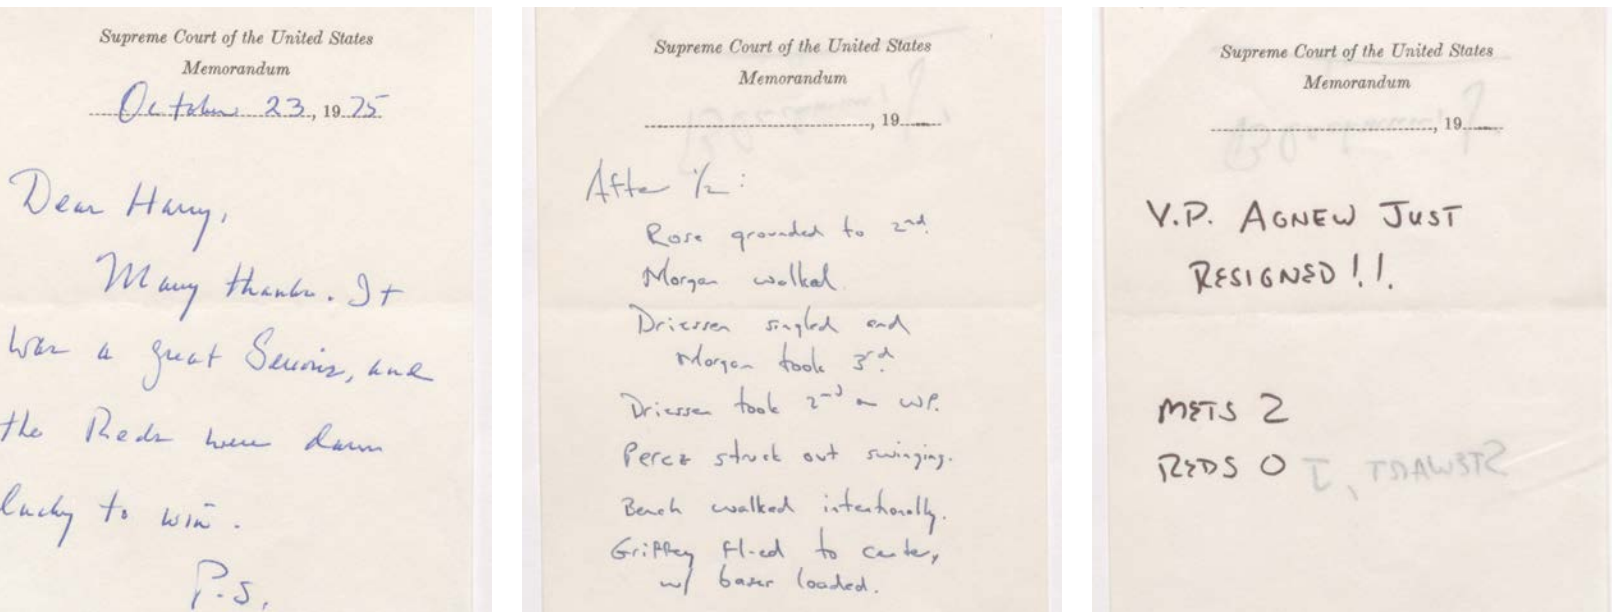 Supreme Court of the United States
Memorandum
October 23, 1975
Dear Harry,
Many thanks. It
was a great Series, and
the Reds were damn
lucky to win.
P.S.
Supreme Court of the United States
Memorandum
, 19
After 1/2:
Rose grounded to 2nd.
Morgan walked.
Driessen singled and
Morgan took 3rd.
Driessen took 2nd on WP.
Perez struck out swinging.
Bench walked intentionally.
Griffey flied to center,
w/ bases loaded.
Supreme Court of the United States
Memorandum
, 19
V.P. AGNEW JUST
RESIGNED!!
METS 2
REDS 0
STEWART, J